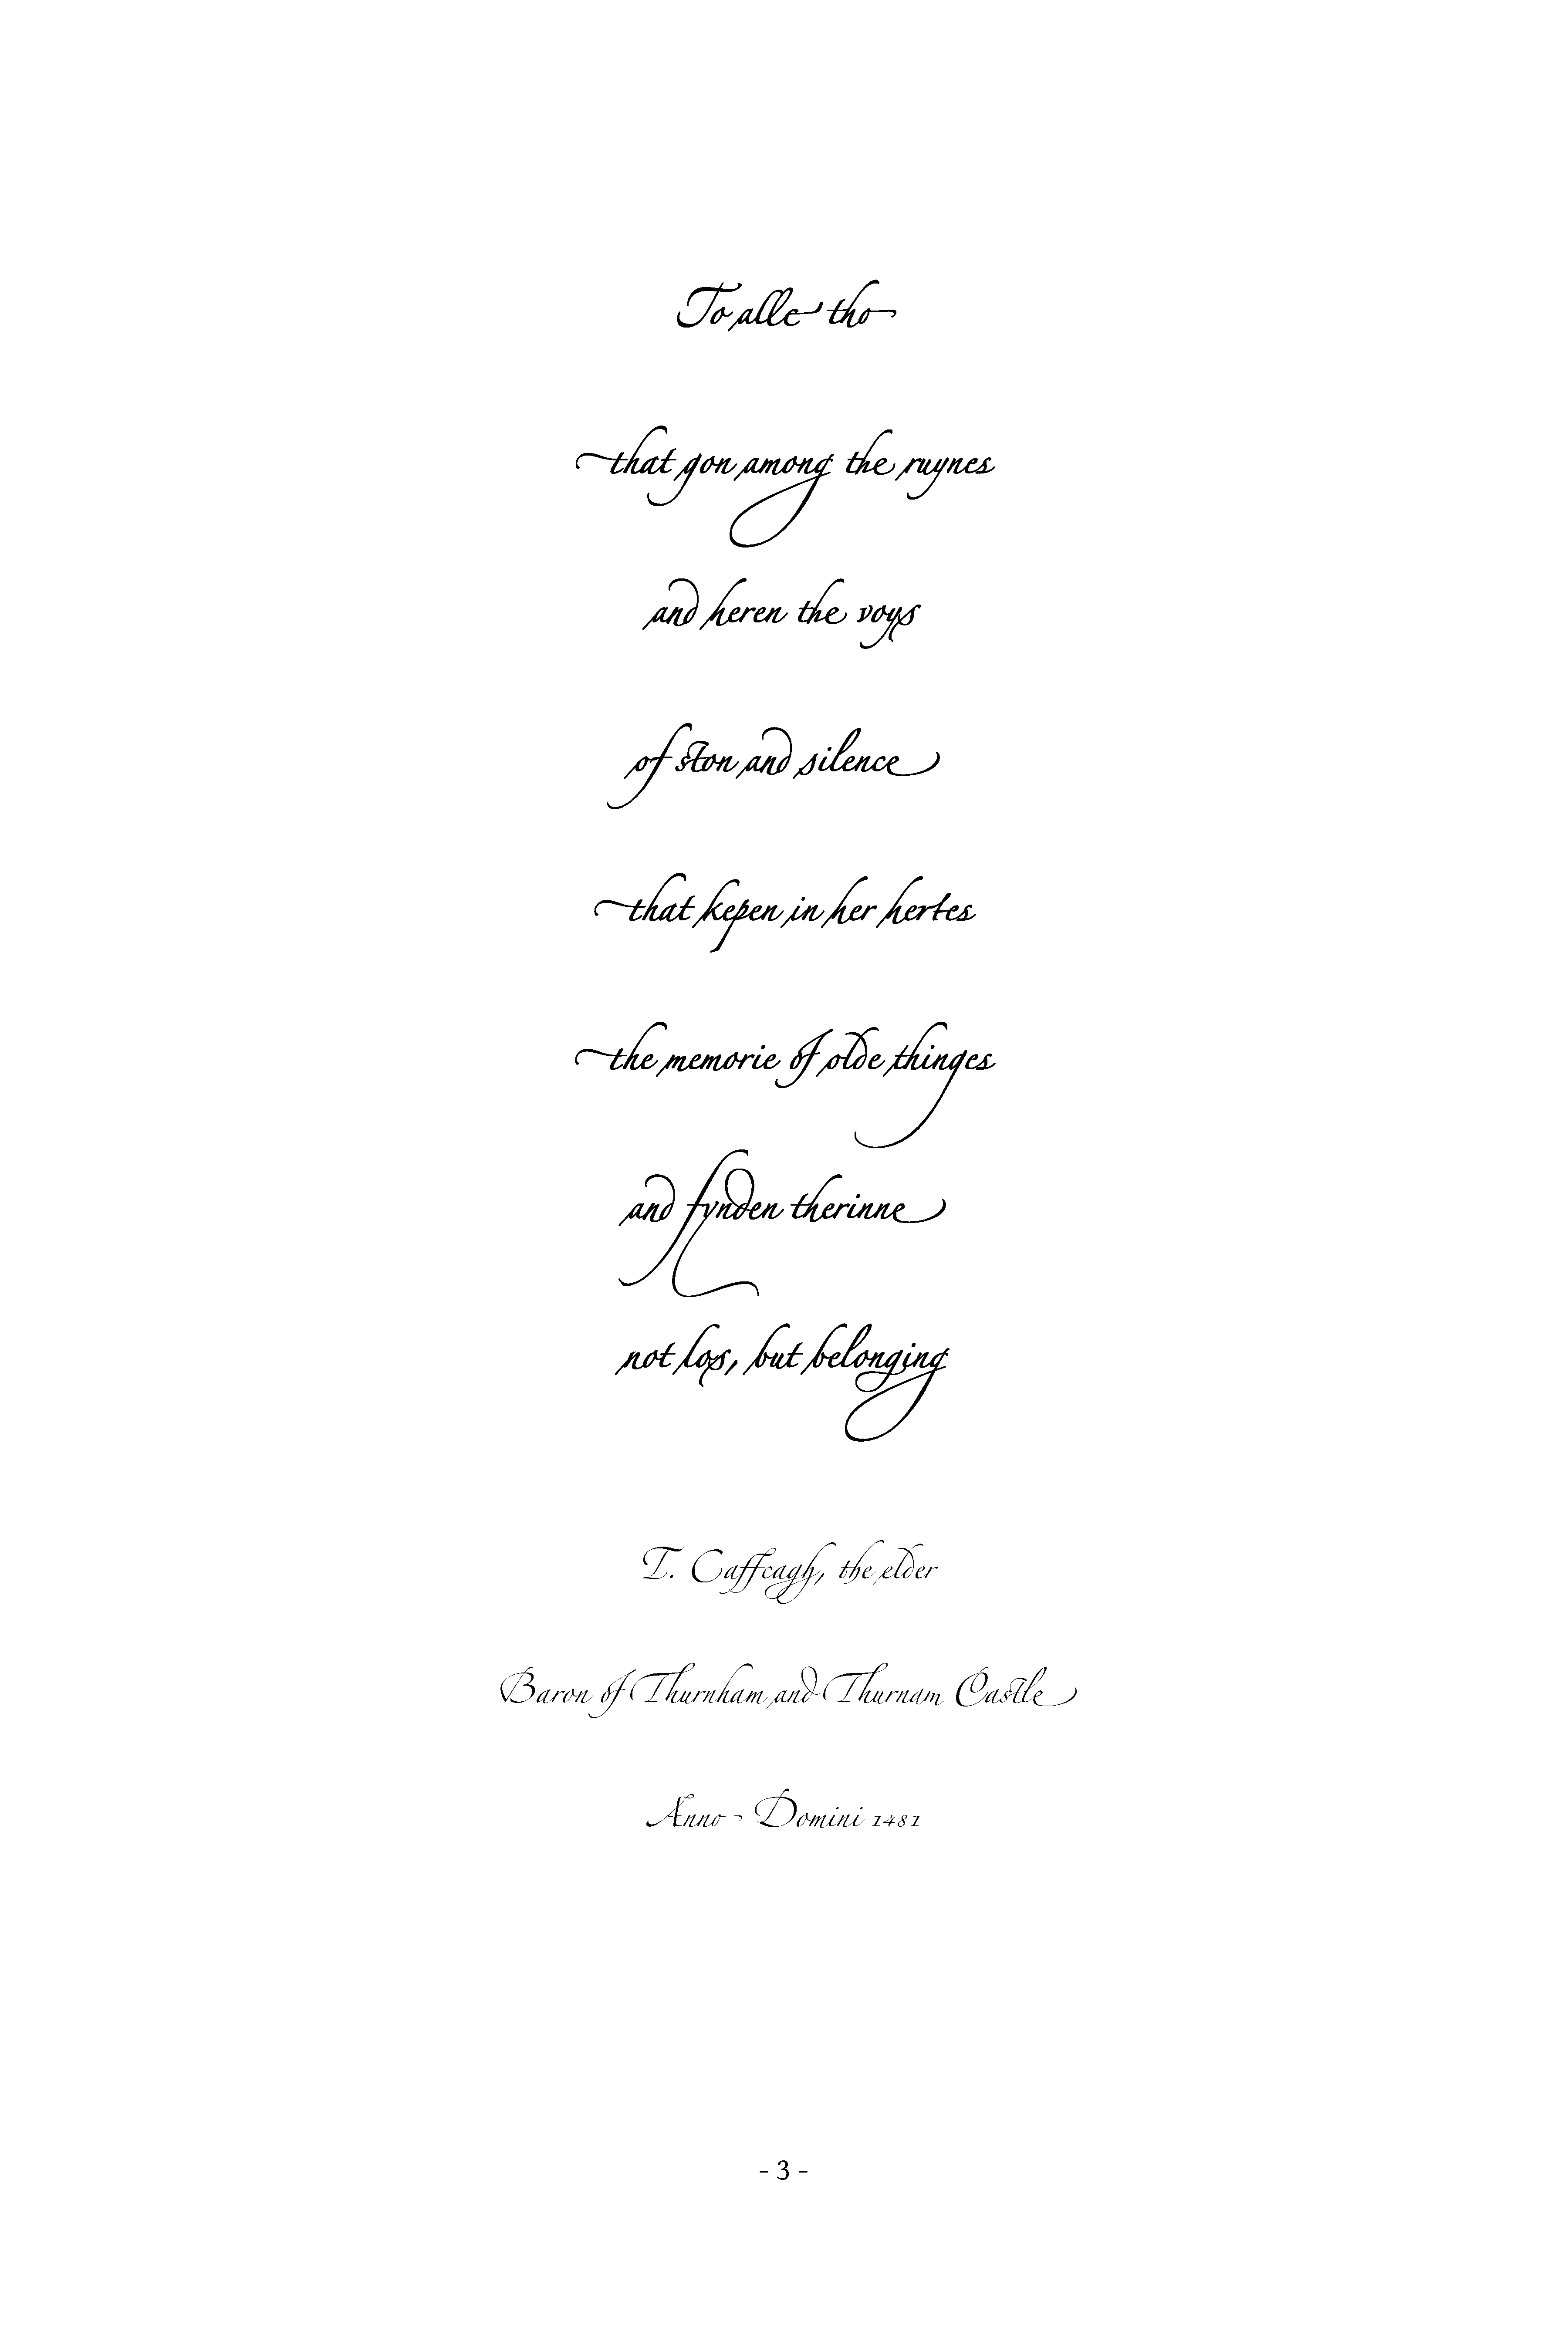 To alle tho
that gon among the ruynes
and heren the voys
of ston and silence
that kepen in her hertes
the memorie of olde thinges
and fynden therinne
not los, but belonging
T. Caffcagh, the elder
Baron of Thurnham and Thurnam Castle
Anno Domini 1481
- 3 -